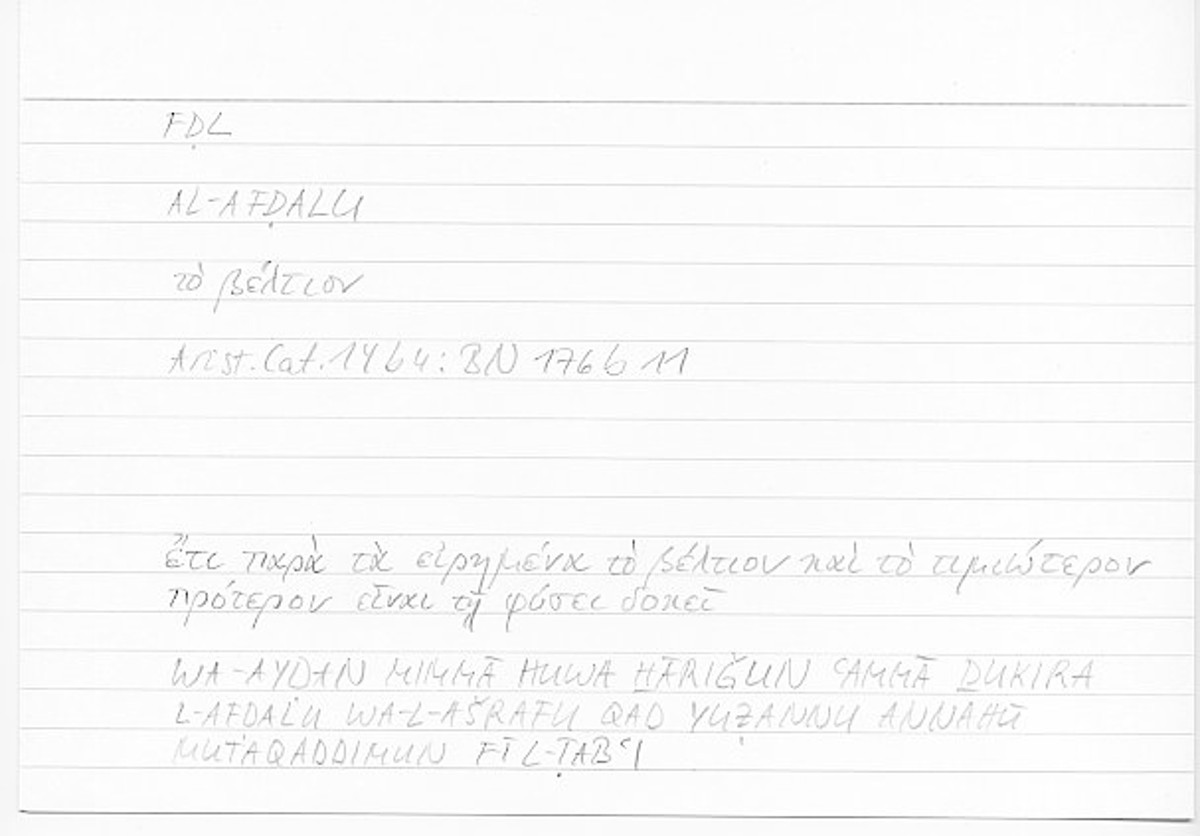 FḌL
AL-AFḌALU
τὸ βέλτιον
Arist. Cat. 14b4: BN 176b11
ἔτι παρὰ τὰ εἰρημένα τὸ βέλτιον καὶ τὸ τιμιώτερον
πρότερον εἶναι τῇ φύσει δοκεῖ
WA-AYḌAN MIMMĀ HUWA ḪĀRIǦUN ʿAMMĀ ḎUKIRA
L-AFḌALU WA-L-AŠRAFU QAD YUẒANNU ANNAHŪ
MUTAQADDIMUN FĪ L-ṬABʿI